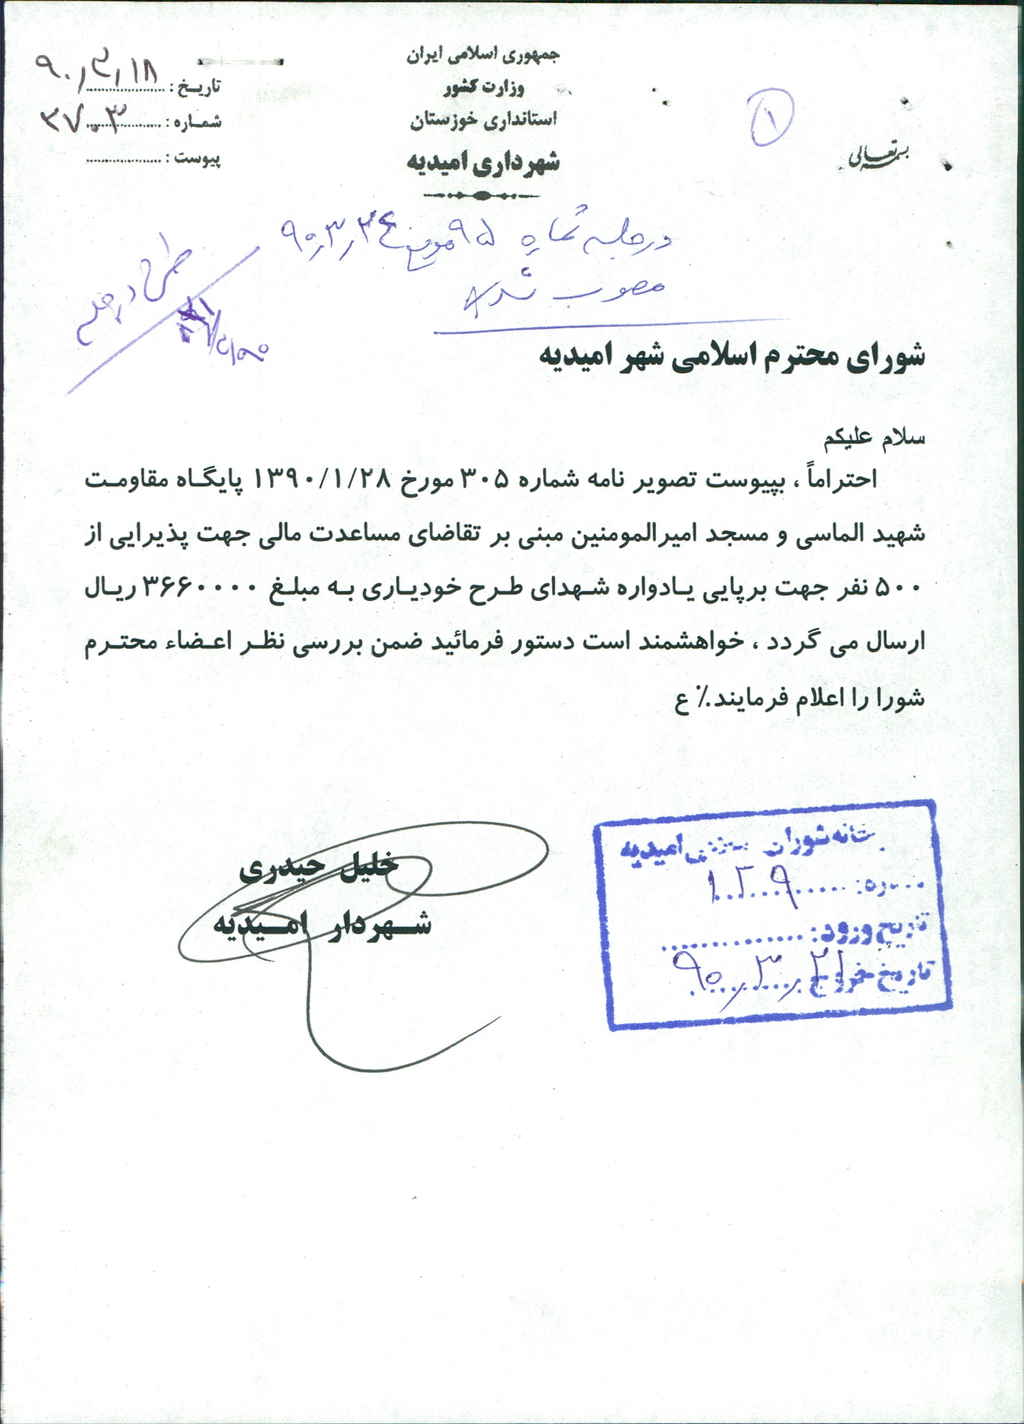 بسمه تعالی
جمهوری اسلامی ایران
وزارت کشور
استانداری خوزستان
شهرداری امیدیه
تاریخ : ۹۰/۳/۱۸
شماره : ۳۷۰۳
پیوست :
۱
در جلسه شماره ۹۵ مورخ ۹۰/۳/۲۴
مصوب شد
طرح در جلسه
شورای محترم اسلامی شهر امیدیه
سلام علیکم
احتراماً ، بپیوست تصویر نامه شماره ۳۰۵ مورخ ۱۳۹۰/۱/۲۸ پایگاه مقاومت
شهید الماسی و مسجد امیرالمومنین مبنی بر تقاضای مساعدت مالی جهت پذیرایی از
۵۰۰ نفر جهت برپایی یادواره شهدای طرح خودیاری به مبلغ ۳۶۶۰۰۰۰ ریال
ارسال می گردد ، خواهشمند است دستور فرمائید ضمن بررسی نظر اعضاء محترم
شورا را اعلام فرمایند.٪ ع
خلیل حیدری
شهردار امیدیه
امیدیه
۱۲۰۹
تاریخ ورود:
تاریخ خروج: ۹۰/۳/۲۱